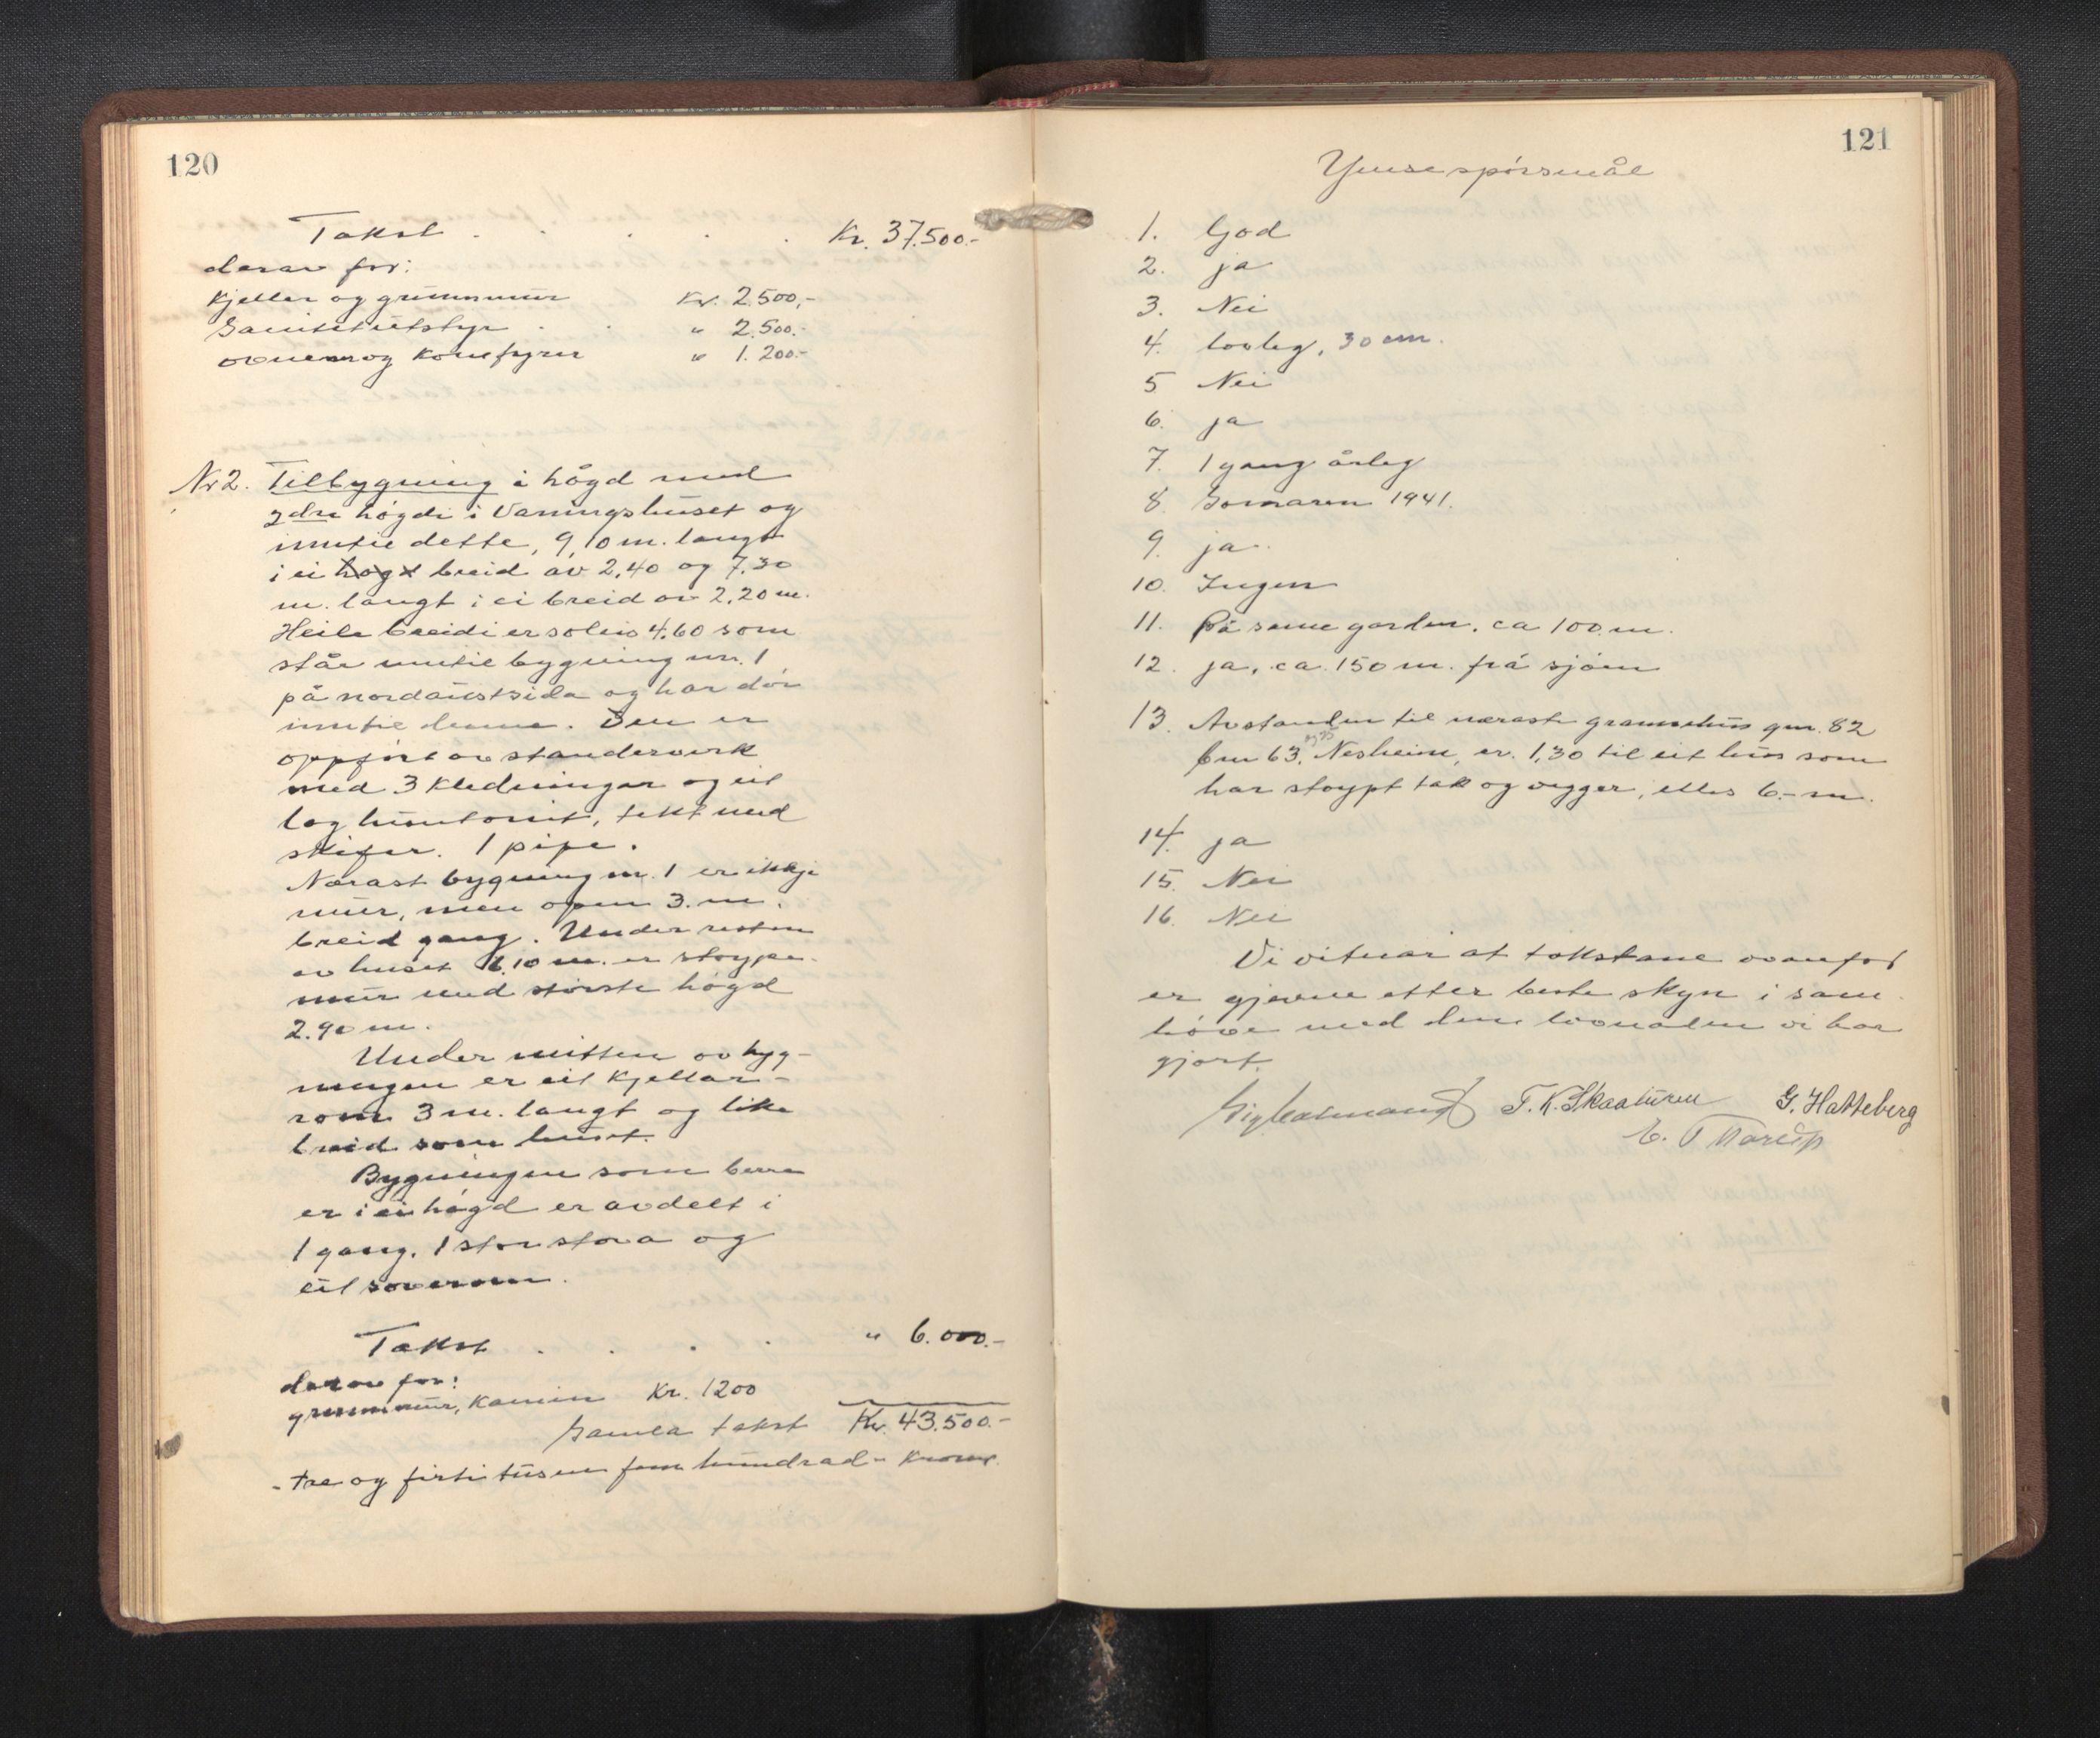 120
Takst . . . . . Kr. 37.500.-
derav for:
Kjellar og grunnmur Kr. 2.500,-
Sanitetutstyr . . " 2.500.-
ovnar og Komfyrer " 1.200.-
Nr 2. Tilbygning i høgd med
2dre høgdi i Våningshuset og
inntil dette, 9,10 m. langt
i ei høgd breid av 2,40 og 7,30
m. langt i ei breid av 2,20 m.
Heile breidi er soleis 4.60 som
står inntil bygning nr. 1
på nordaustsida og har dør
inntil denne. Den er
oppført av standerverk
med 3 Kledningar og eit
lag huntonit, tekt med
skifer. 1 pipe.
Nærast bygning nr. 1 er ikkje
mur, men open 3. m.
breid gang. Under resten
av huset 6,10 m. er støype-
mur med største høgd
2.90 m.
Under mitten av byg-
ningen er eit Kjellar-
rom 3 m. langt og like
breid som huset.
Bygningen som berre
er i ei høgd er avdelt i
1 gang, 1 stor stova og
eit soverom.
Takst . . . . " 6.000.-
derav for:
grunnmur, Kamin Kr. 1200
Samla takst Kr. 43.500.-
- Tre og firti tusen fem hundrad - Kroner
121
Ymse spørsmål
1. God
2. ja
3. Nei
4. lovleg, 30 cm.
5 Nei
6. ja
7. 1 gang årleg
8. Somaren 1941.
9. ja.
10. Ingen
11. På same garden, ca 100 m.
12. ja, ca. 150 m. frå sjøen
13. Avstanden til næraste grannehus gnr. 82
bnr 63, Nesheim, er. 1,30 til eit hus som
har støypt tak og vegger, elles 6.- m.
14. ja
15. Nei
16. Nei
Vi vitnar at takstane ovanfor
er gjevne etter beste skyn i sam-
høve med den lovnaden vi har
gjort.
T. K. Skaaturen G. Hatteberg